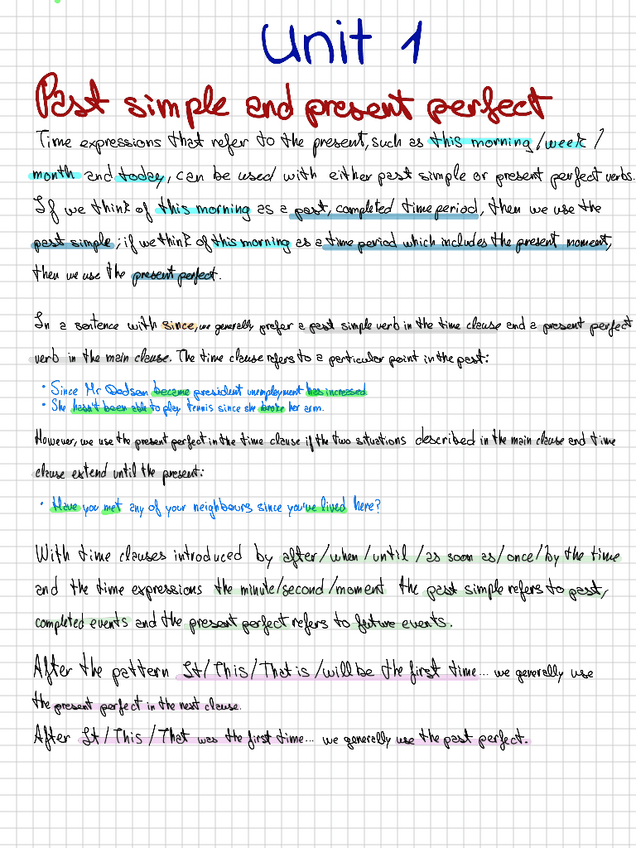 Unit 1
Past simple and present perfect
Time expressions that refer to the present, such as this morning / week /
month and today, can be used with either past simple or present perfect verbs.
If we think of this morning as a past, completed time period, then we use the
past simple; if we think of this morning as a time period which includes the present moment,
then we use the present perfect.
In a sentence with since, we generally prefer a past simple verb in the time clause and a present perfect
verb in the main clause. The time clause refers to a particular point in the past:
• Since Mr Dodson became president unemployment has increased
• She hasn't been able to play tennis since she broke her arm.
However, we use the present perfect in the time clause if the two situations described in the main clause and time
clause extend until the present:
• Have you met any of your neighbours since you've lived here?
With time clauses introduced by after / when / until / as soon as / once / by the time
and the time expressions the minute / second / moment the past simple refers to past,
completed events and the present perfect refers to future events.
After the pattern It / This / That is / will be the first time... we generally use
the present perfect in the next clause.
After It / This / That was the first time... we generally use the past perfect.